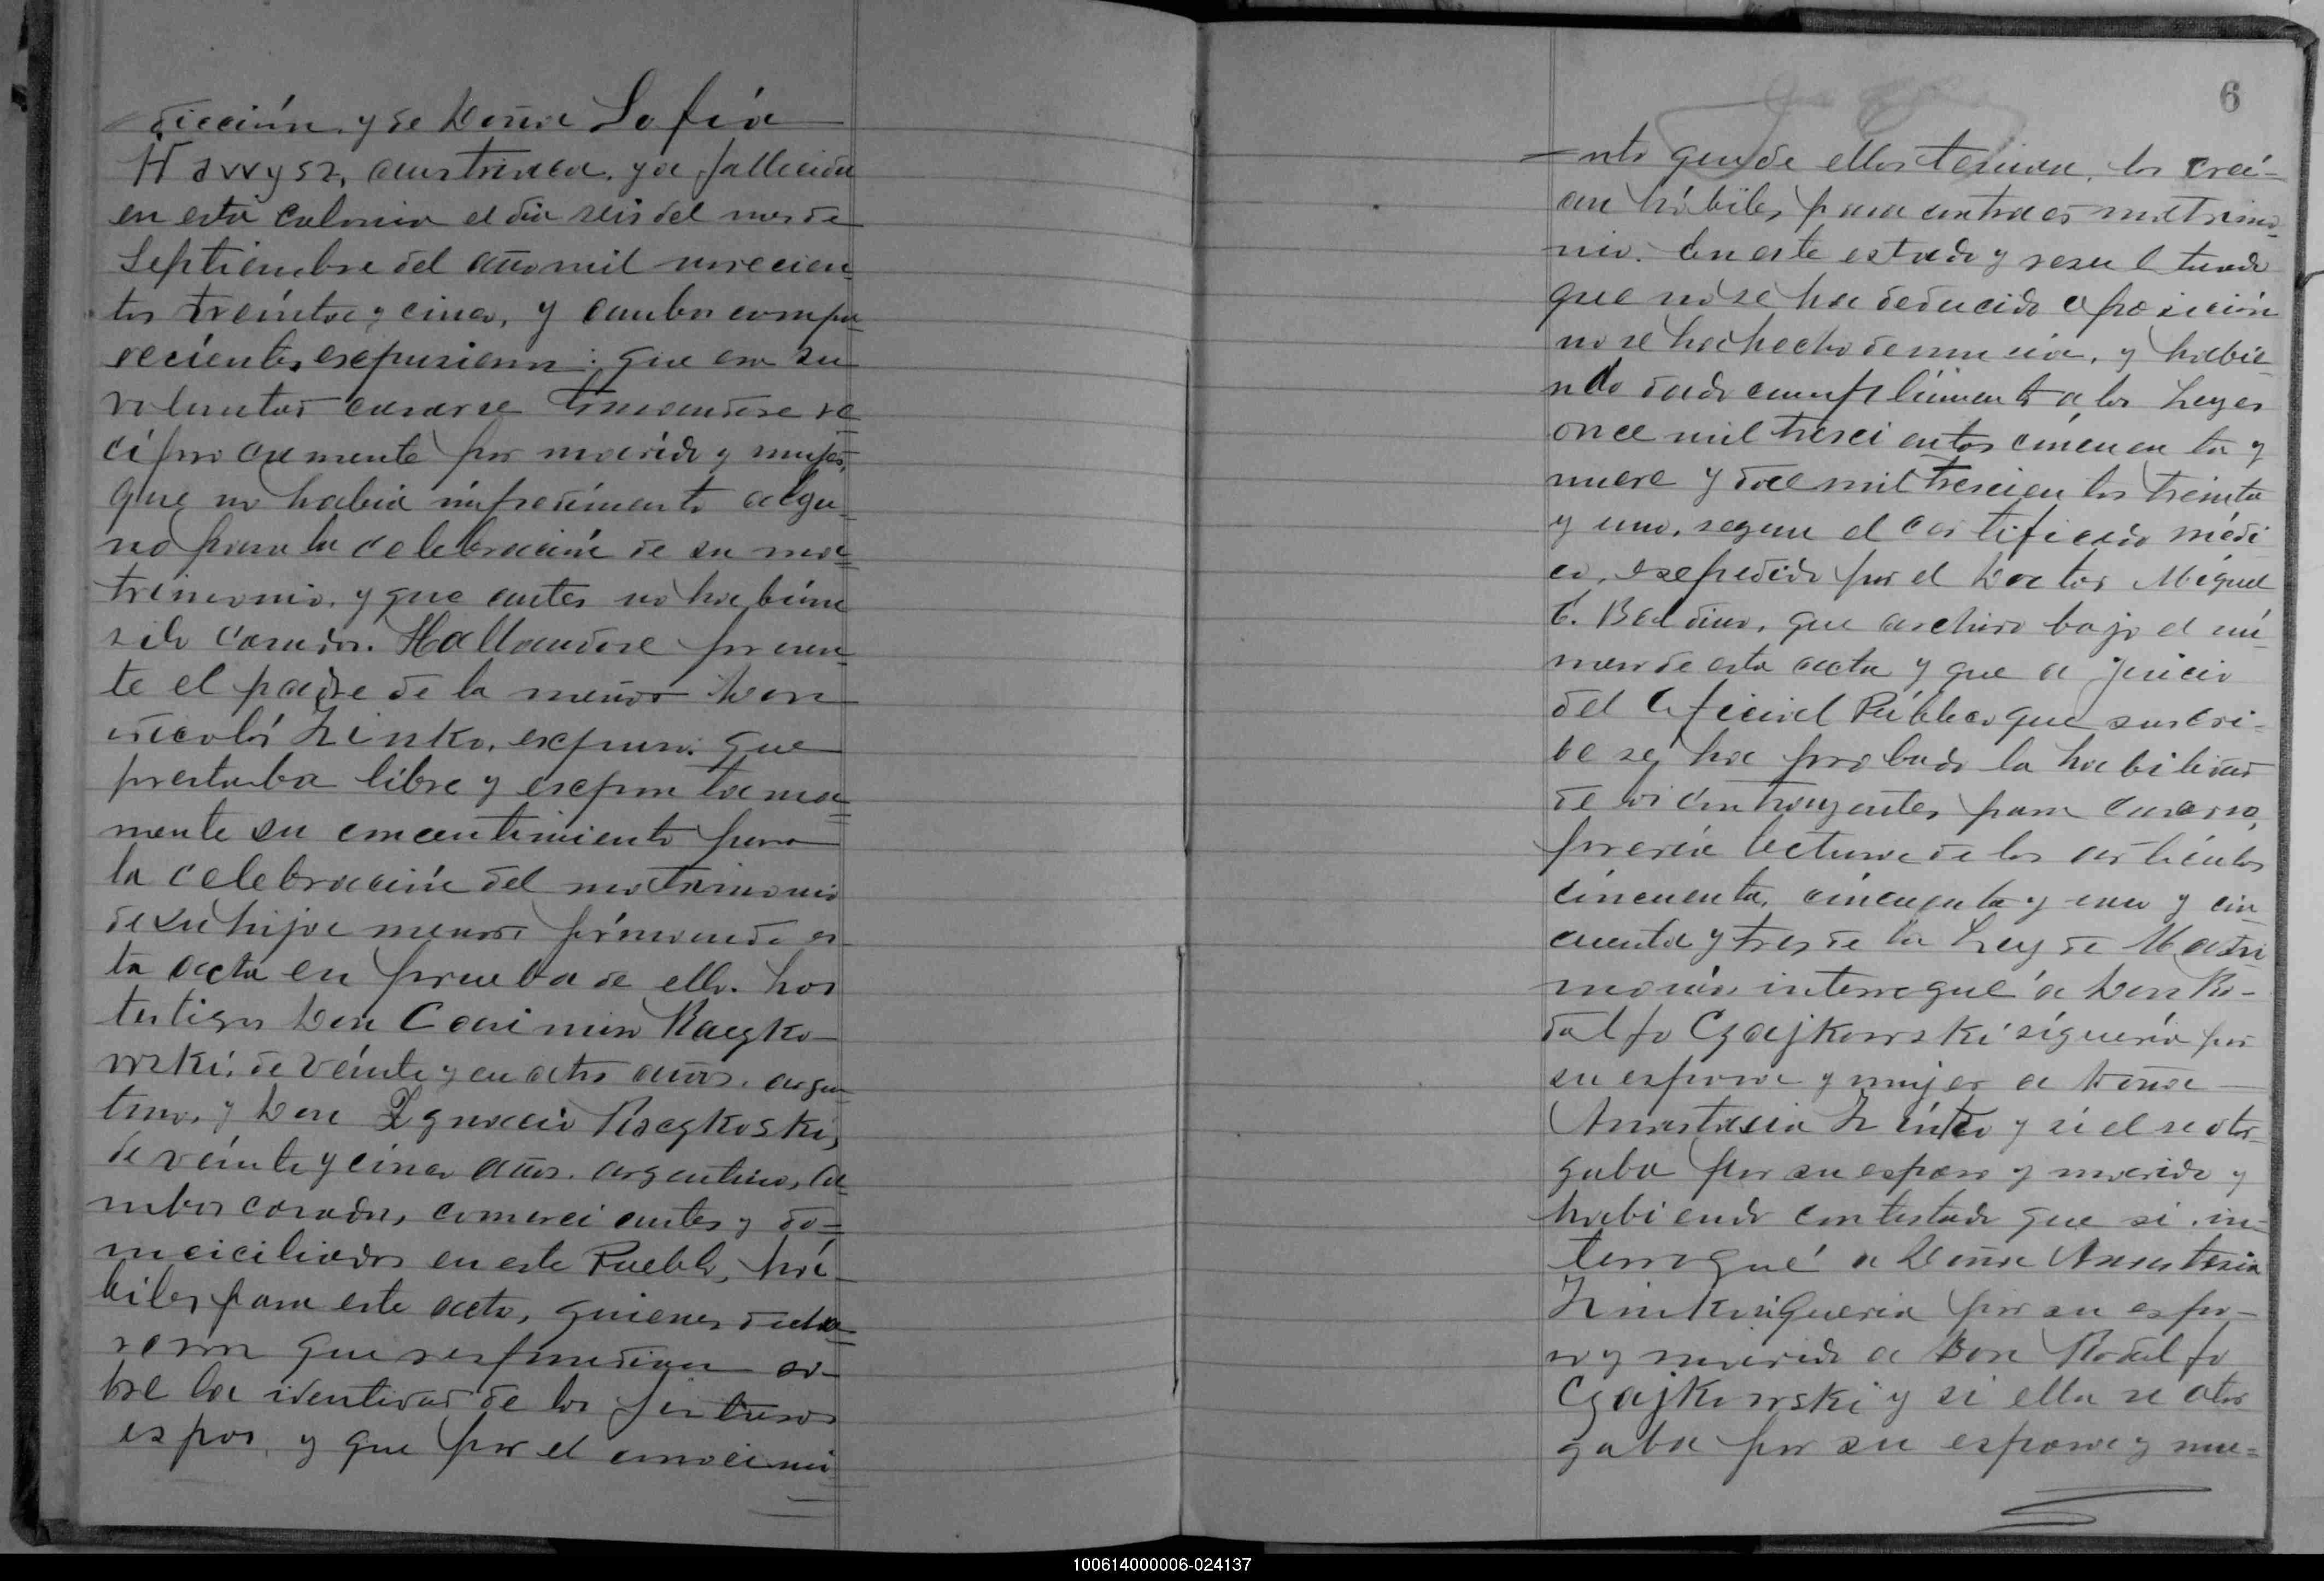 dicción, y de Doña Sofía
Hawysz, austriaca, ya fallecida
en esta Colonia el dia seis del mes de
Septiembre del año mil novecien=
tos treinta y cinco, y ambos compa=
recientes expusieron: que era su
voluntad casarse tomandose re=
cíprocamente por marido y mujer,
que no habia impedimento algu=
no para la celebración de su ma=
trimonio, y que antes no habian
sido casados. Hallandose presen=
te el padre de la menor Don
Nicolás Zinko, expuso: que
prestaba libre y expontanea=
mente su concentimiento para
la celebración del matrimonio
de su hija menor firmando es-
ta acta en prueba de ello. Los
testigos Don Casimiro Raczko-
wski, de veinte y cuatro años, argen=
tino, y Don Ignacio Raczkoski,
de veinte y cinco años, argentino, a=
mbos casados, comerciantes y do=
miciliados en este Pueblo, há-
biles para este acto, quienes decla=
raron que respondian so-
bre la identidad de los futuros
espos, y que por el conocimi=
6
=nto que de ellos tenian, los creí-
an hábiles para contraer matrimo=
nio. En este estado y resultando
que no se ha deducido oposición
no se ha hecho denuncia, y habie-
ndo dado cumplimiento a las Leyes
once mil trescientos cincuenta y
nueve y doce mil trescientos treinta
y uno, segun el certificado médi
co, expedido por el Doctor Miguel
C. Baldino, que archivo bajo el nú-
mero de esta acta y que a juicio
del Oficial Público que suscri-
be se ha probado la habilidad
de los contrayentes para casarse,
previa lectura de los artículos
cincuenta, cincuenta y uno y cin
cuenta y tres de la Ley de Matri
monio, interrogué a Don Ro-
dolfo Czajkowski si queria por
su esposa y mujer a Doña
Anastasia Zinko y si el se otor-
gaba por su esposo y marido y
habiendo contestado que si, in=
terrogué a Doña Anastasia
Zinko si queria por su espo-
so y marido a Don Rodolfo
Czajkowski y si ella se otor
gaba por su esposa y mu=
100614000006-024137